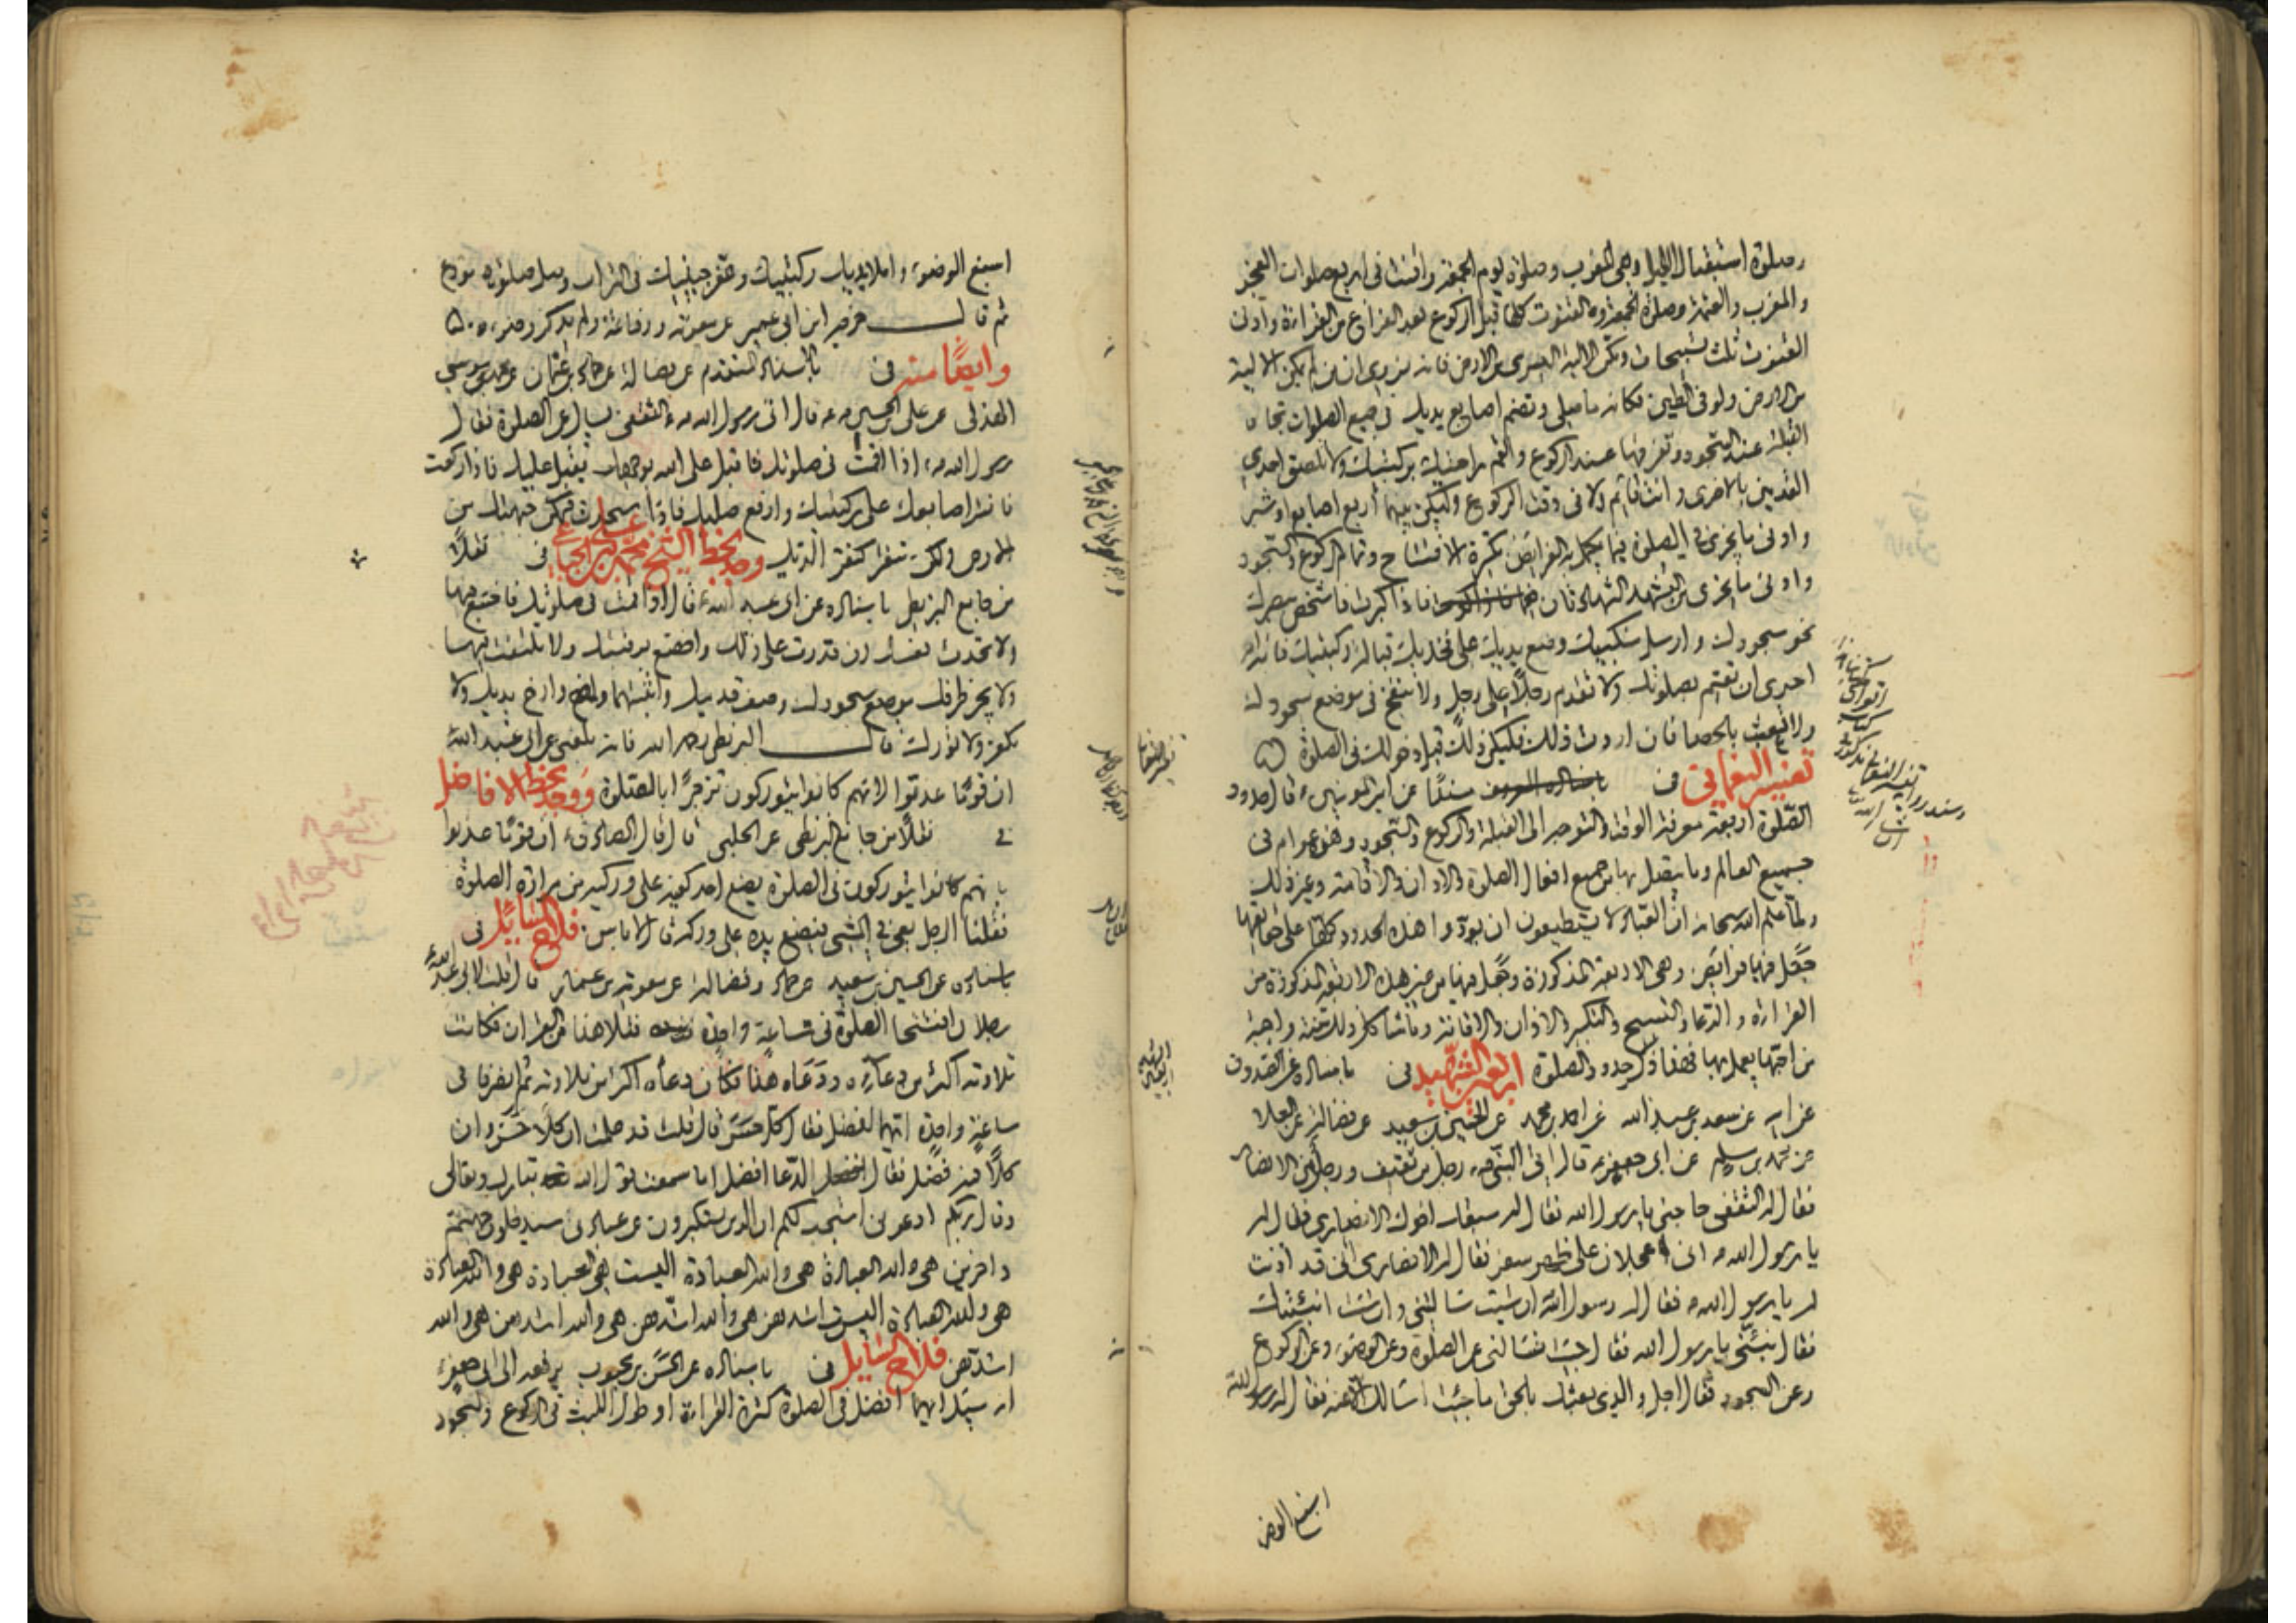 وصلوة استقبال الليل وهي المغرب وصلوة يوم الجمعة واقنت في اربع صلوات الفجر
والمغرب والعتمة وصلوة الجمعة والقنوت كلها قبل الركوع بعد الفراغ من القراءة وادنى
القنوت ثلث تسبيحات ومكن الالية اليسرى من الارض فانه نروى ان من لم يمكن الالية
من الارض ولو في الطين فكانه ما صلى وتضم اصابع يديك في جميع الصلوات تجاه
القبلة عند السجود وتفرقها عند الركوع والقم راحتيك بركبتيك ولا تلصق احدى
القدمين بالاخرى وانت قائم ولا في وقت الركوع وليكن بينهما اربع اصابع او شبر
وادنى ما يجزى في الصلوة فيما يكمل به الفرايض تكبيرة الافتتاح وتمام الركوع والسجود
وادنى ما يجزى من التشهد الشهادتان فاذا كبرت فاشخص ببصرك
نحو سجودك وارسل منكبيك وضع يديك على فخذيك قبالة ركبتيك فانه
احرى ان تقيم بصلوتك ولا تقدم رجلا على رجل ولا تنفخ في موضع سجودك
ولا تعبث بالحصا فان اردت ذلك فليكن ذلك قبل دخولك في الصلوة
تفسير النعماني في عن امير المؤمنين ع قال حدود
الصلوة اربعة معرفة الوقت والتوجه الى القبلة والركوع والسجود وهذه عوام في
جميع العالم وما يتصل بها من جميع افعال الصلوة والاذان والاقامة وغير ذلك
ولما علم الله سبحانه ان العباد لا يستطيعون ان يؤدوا هذه الحدود كلها على حقايقها
جعل فيها فرايض وهي الاربعة المذكورة وجعل فيها من غير هذه الاربعة المذكورة من
القراءة والدعاء والتسبيح والتكبير والاذان والاقامة وما شاكل ذلك سنة واجبة
من احبها يعمل بها فهذا ذكر حدود الصلوة اربعين الشهيد في باسناده عن الصدوق
عن ابيه عن سعد بن عبد الله عن احمد بن محمد عن الحسين بن سعيد عن فضالة عن العلا
عن محمد بن مسلم عن ابي جعفر ع قال اتى النبي ص رجل من ثقيف ورجل من الانصار
فقال له الثقفي حاجتي يا رسول الله فقال له سبقك اخوك الانصاري فقال له
يا رسول الله ص اني عجلان على ظهر سفر فقال له الانصاري اني قد اذنت
له يا رسول الله ص فقال له رسول الله ان شئت سالتني وان شئت انبئتك
فقال نبئني يا رسول الله فقال جئت تسالني عن الصلوة وعن الوضوء وعن الركوع
وعن السجود فقال اجل والذي بعثك بالحق ما جئت اسالك الا عنه فقال له رسول الله
اسبغ الوضوء
اسبغ الوضوء واملا يديك من ركبتيك وعفر جبينيك في التراب وصل صلوة مودع
ثم قال عن ابن ابي عمير عن معوية ورفاعة ولم يذكر
وايضا منه في بالاسناد المتقدم عن فضالة عن حماد بن عثمان عن محمد بن موسى
الهذلي عن علي بن الحسين ع قال اتى رسول الله ص الثقفي يسال عن الصلوة فقال
رسول الله ص اذا قمت في صلوتك فاقبل على الله بوجهك يقبل عليك فاذا ركعت
فانشر اصابعك على ركبتيك وارفع صلبك فاذا سجدت فمكن جبهتك من
الارض ولا تنقر كنقر الديك وجد بخط الشيخ محمد بن علي الجباعي في نقلا
من جامع البزنطي باسناده عن ابي عبد الله ع قال اذا قمت في صلوتك فاخشع فيها
ولا تحدث نفسك ان قدرت على ذلك واخضع برقبتك ولا تلتفت فيها
ولا يجز طرفك موضع سجودك وصف قدميك واثبتهما وارخ يديك ولا
تكفر ولا تورك قال البزنطي رحمه الله فانه بلغني عن ابي عبد الله ع
ان قوما عذبوا لانهم كانوا يتوركون تزجرا بالصلوة ووجد بخط الافاضل
في نقلا من جامع البزنطي عن الحلبي قال قال الصادق ع ان قوما عذبوا
بانهم كانوا يتوركون في الصلوة يضع احد كفيه على وركيه من ملالة الصلوة
فقلنا الرجل يعي في المشي فيضع يده على وركه قال لا باس فلاح السائل في
باسناده عن الحسين بن سعيد عن حماد وفضالة عن معوية بن عمار قال قلت لابي عبد الله ع
رجلان افتتحا الصلوة في ساعة واحدة فتلا هذا من القران فكانت
تلاوته اكثر من دعائه ودعا هذا فكان دعاؤه اكثر من تلاوته ثم انصرفا في
ساعة واحدة ايهما افضل فقال كل حسن قال قلت قد علمت ان كلا حسن وان
كلا فيه فضل فقال الدعا افضل اما سمعت قول الله تبارك وتعالى
وقال ربكم ادعوني استجب لكم ان الذين يستكبرون عن عبادتي سيدخلون جهنم
داخرين هي والله العبادة هي والله العبادة اليست هي العبادة هي والله العبادة
هي والله العبادة اليست اشدهن هي والله اشدهن هي والله اشدهن هي والله
اشدهن فلاح السائل في باسناده عن الحسن بن محبوب يرفعه الى ابي جعفر ع
انه سئل ايهما افضل في الصلوة كثرة القراءة او طول اللبث في الركوع والسجود